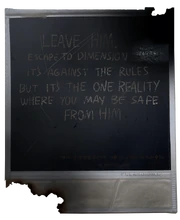 LEAVE HIM.
ESCAPE TO DIMENSION
IT'S AGAINST THE RULES
BUT IT'S THE ONE REALITY
WHERE YOU MAY BE SAFE
FROM HIM.